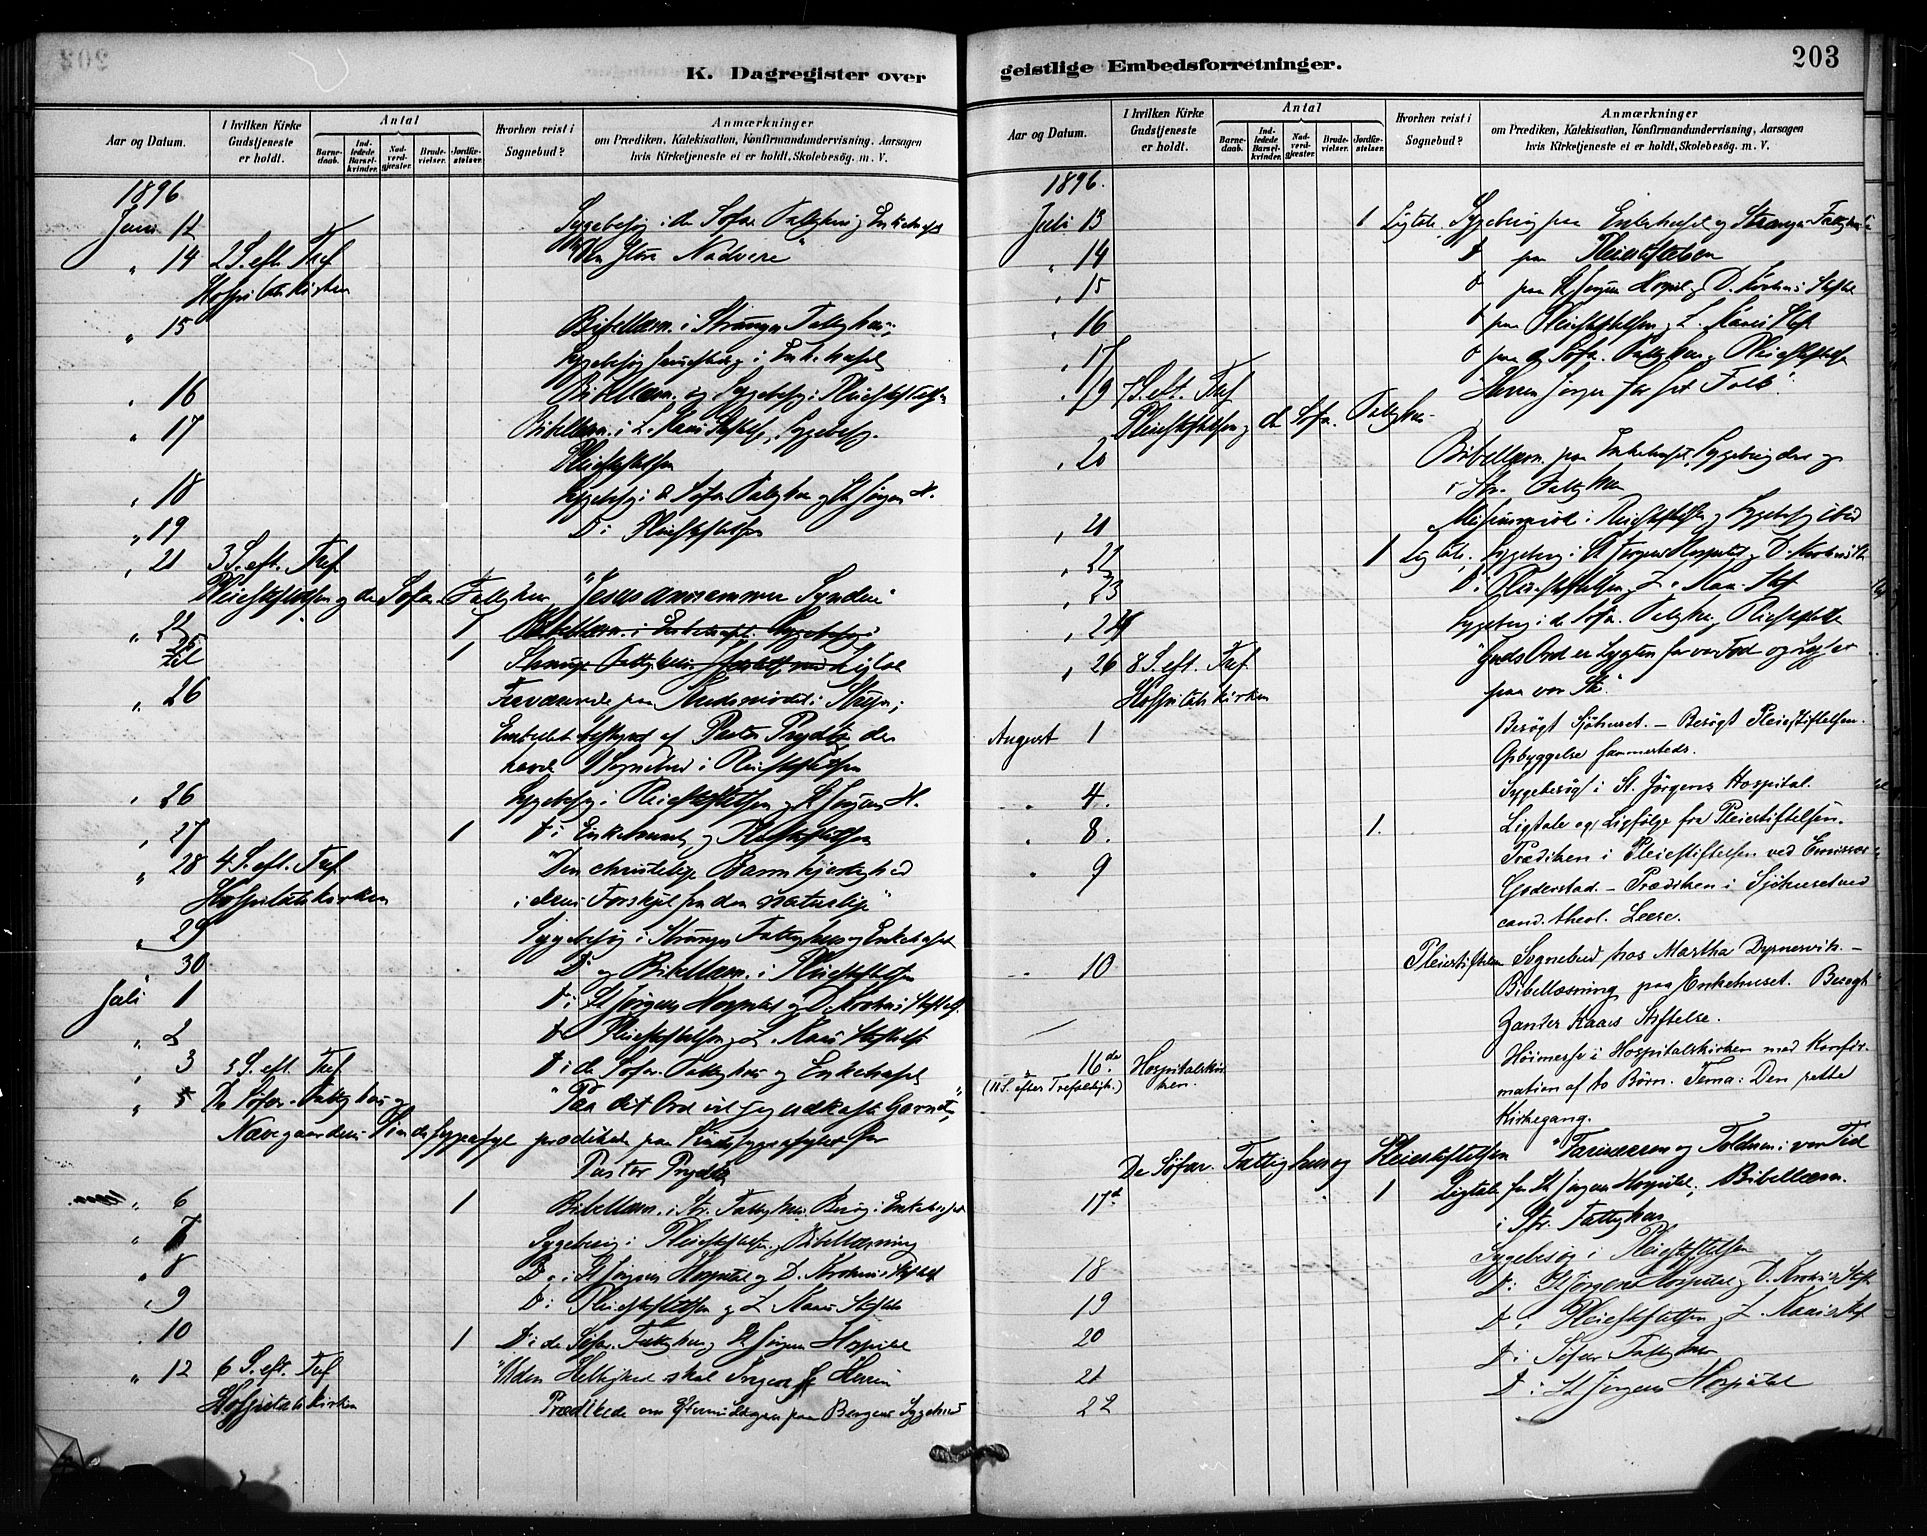 203
K. Dagregister over
Aar og Datum.
I hvilken Kirke Gudstjeneste er holdt.
Antal
Barne-daab.
Ind-ledede Barsel-kvinder.
Nad-verd-gjæster.
Brude-vielser.
Jordfæ-stelser.
Hvorhen reist i Sognebud?
Anmærkninger
om Prædiken, Katekisation, Konfirmandundervisning, Aarsagen
hvis Kirketjeneste ei er holdt, Skolebesøg. m. V.
1896
Juni 12 Sygebesøg i de Søfar. Fattighus og Enkehuset
" 14 2 S. eft. Tref. "Den store Nadvere"
Hospitalskirken
" 15 Bibellæsn. i Strangs Fattighus;
i Enkehuset
" 16 Bibellæsn. og Sygebesøg i Pleiestiftelsen
" 17 Bibellæsn. i Z. Kaas Stiftelse, Sygebesøg.
Pleiestiftelsen
" 18 Sygebesøg i d. Søfar. Fattighus og St Jørgens H.
" 19 Do i Pleiestiftelsen
" 21 3 S. eft. Tref.
Pleiestiftelsen og de Søfar. Fattighus "Jesus annammer Syndere"
" 22 1 Bibellæsn. i Enkehuset. Sygebesøg i
til 25 1 Strangs Fattighus. Ligtale
" 26 Fraværende paa
Embedet bestyret af Pastor Prydtz, der
havde Sognebud i Pleiestiftelsen
" 26 Sygebesøg i Pleiestiftelsen og St Jørgens H.
" 27 1 Do i Enkehuset og Pleiestiftelsen
" 28 4 S. eft. Tref. "Den christelige Barmhjertighed
Hospitalskirken i dens Forskjel fra den naturlige"
" 29 Sygebesøg i Strangs Fattighus og Enkehuset
" 30 Do og Bibellæsn. i Pleiestiftelsen
Juli 1 Do i St Jørgens Hospital og D. Krohns Stiftelse.
" 2 Do Pleiestiftelsen og Z. Kaas Stiftelse
" 3 5 S. eft. Tref. Do i de Søfar. Fattighus og Enkehuset
" 5 De Søfar. Fattighus og "Paa dit Ord vil jeg udkaste Garnet",
Neevegaardens Sindssygeasyl prædikede paa Sindssygeasylet for
Pastor Prydtz
" 6 1 Bibellæsn. i Str. Fattighus. Besøg i Enkehuset
" 7 Sygebesøg i Pleiestiftelsen, Bibellæsning
" 8 Do i St Jørgens Hospital og D. Krohns Stiftelse
" 9 Do i Pleiestiftelsen og Z. Kaas Stiftelse
" 10 1 Do i de Søfar. Fattighus og St Jørgens Hospital
" 12 6 S. eft. Tref. "Uden Hellighed skal Ingen se Herren
Hospitalskirken Prædikede om Eftermiddagen paa Bergens Sygehus
geistlige Embedsforretninger.
203
Aar og Datum.
I hvilken Kirke Gudstjeneste er holdt.
Antal
Barne-daab.
Ind-ledede Barsel-kvinder.
Nad-verd-gjæster.
Brude-vielser.
Jordfæ-stelser.
Hvorhen reist i Sognebud?
Anmærkninger
om Prædiken, Katekisation, Konfirmandundervisning, Aarsagen
hvis Kirketjeneste ei er holdt, Skolebesøg. m. V.
1896.
Juli 13 1 Ligtale. Sygebesøg paa Enkehuset og Stranges Fattighus
" 14 Do paa Pleiestiftelsen
" 15 Do paa St Jørgens Hospital og D. Krohns Stiftelse
" 16 Do paa Pleiestiftelsen og Z. Kaas Stift
" 17 Do paa de Søfar. Fattighus og Pleiestiftelsen
" 19 7 S. eft. Tref. "Herren sørger for sit Folk".
Pleiestiftelsen og de Søfar. Fattighus
" 20 Bibellæsn. paa Enkehuset, Sygebesøg der og
i Str. Fattighus
" 21 Missionsmøde i Pleiestiftelsen og Sygebesøg ibid
" 22 1 Ligtale. Sygebesøg i St Jørgens Hospital og D. Krohns St
" 23 Do i Pleiestiftelsen og Z. Kaas Stif.
" 24 Sygebesøg i de Søfar. Fattighus og Pleiestiftelsen
" 26 8 S. eft. Tref. "Guds Ord er Lygten for vor Fod og Lyset
Hospitalskirken paa vor Sti".
August 1 Besøgt Sjøhuset. – Besøgt Pleiestiftelsen.
Opbyggelse sammesteds.
" 4. Sygebesøg i St. Jørgens Hospital.
" 8. 1. Ligtale og Ligfølge fra Pleiestiftelsen.
" 9 Prædiken i Pleiestiftelsen ved Emissær
Goderstad. – Prædiken i Sjøhuset ved
cand. theol. Leere.
" 10 Pleiestiftelsen Sognebud hos Martha Dyrnesvik. –
Bibellæsning paa Enkehuset. Besøgt
Zander Kaaes Stiftelse.
16de Hospitalskirken. Høimesse i Hospitalskirken med Konfir-
(11 S. efter Trefoldigh.) mation af to Børn. Tema: Den rette
Kirkegang.
De Søfar. Fattighus og Pleiestiftelsen "Farisæeren og Tolderen i vor Tid
17d 1 Ligtale fra St Jørgens Hospital, Bibellæsn.
i Str. Fattighus
18 Sygebesøg i Pleiestiftelsen
19 Do i St Jørgens Hospital og D. Krohns Stift
20 Do i Pleiestiftelsen og Z. Kaas Stif
21 Do i Søfar Fattighus
22 Do i St Jørgens Hospital